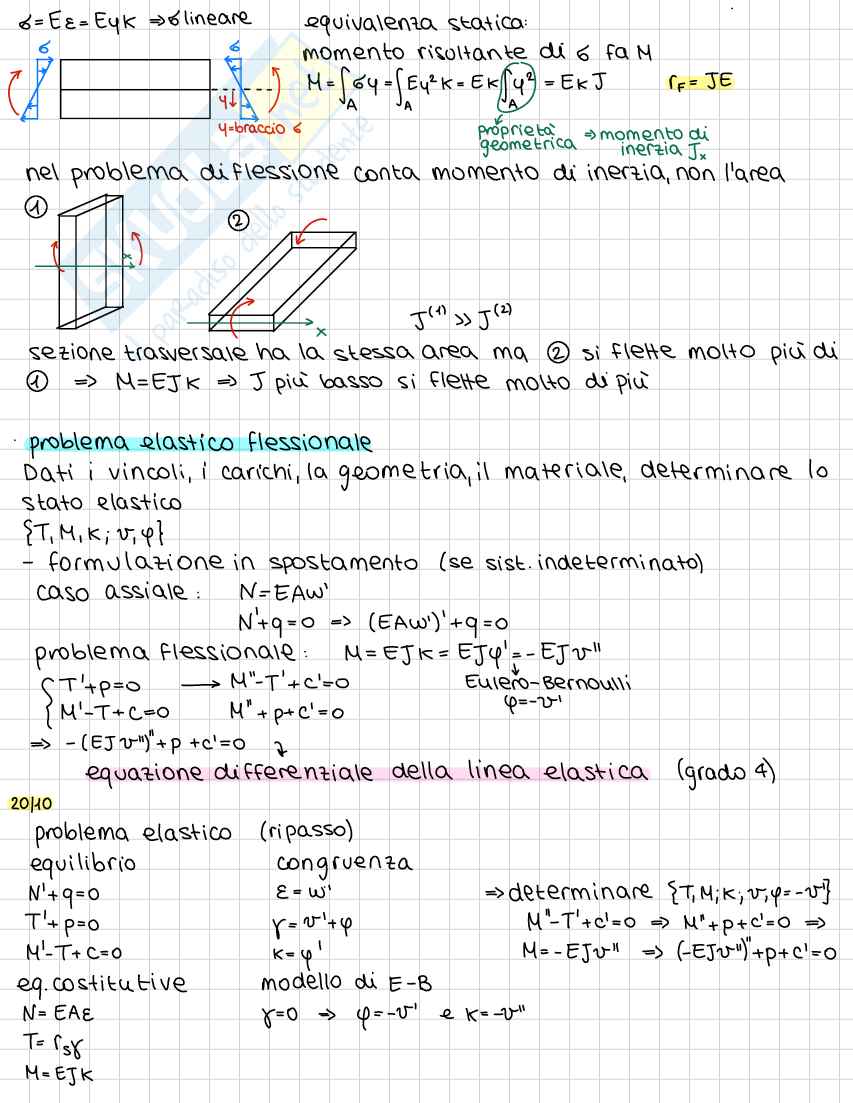 σ=Eε=EyK ⇒σ lineare
equivalenza statica:
momento risultante di σ fa M
σ
σ
M=∫_A σy=∫_A Ey²K=EK∫_A y²=EKJ
r_F=JE
y
y=braccio σ
proprietà geometrica ⇒momento di inerzia Jₓ
nel problema di flessione conta momento di inerzia, non l'area
①
②
x
x
J⁽¹⁾ >> J⁽²⁾
SKUOLA.net
il paradiso dello studente
sezione trasversale ha la stessa area ma ② si flette molto più di
① ⇒ M=EJK ⇒ J più basso si flette molto di più
problema elastico flessionale
Dati i vincoli, i carichi, la geometria, il materiale, determinare lo
stato elastico
{T,M,K; v,φ}
- formulazione in spostamento (se sist. indeterminato)
caso assiale: N=EAw'
N'+q=0 ⇒ (EAw')'+q=0
problema flessionale: M=EJK=EJφ'=-EJv''
T'+p=0 → M''-T'+c'=0
Eulero-Bernoulli
M'-T+C=0 M''+p+c'=0
φ=-v'
⇒ -(EJv'')''+p+c'=0
equazione differenziale della linea elastica (grado 4)
20/10
problema elastico (ripasso)
equilibrio congruenza
N'+q=0 ε=w' ⇒determinare {T,M;K;v,φ=-v'}
T'+p=0 γ=v'+φ M''-T'+c'=0 ⇒ M''+p+c'=0 ⇒
M'-T+C=0 K=φ' M=-EJv'' ⇒ (-EJv'')''+p+c'=0
eq.costitutive modello di E-B
N=EAε γ=0 ⇒ φ=-v' e K=-v''
T=r_sγ
M=EJK